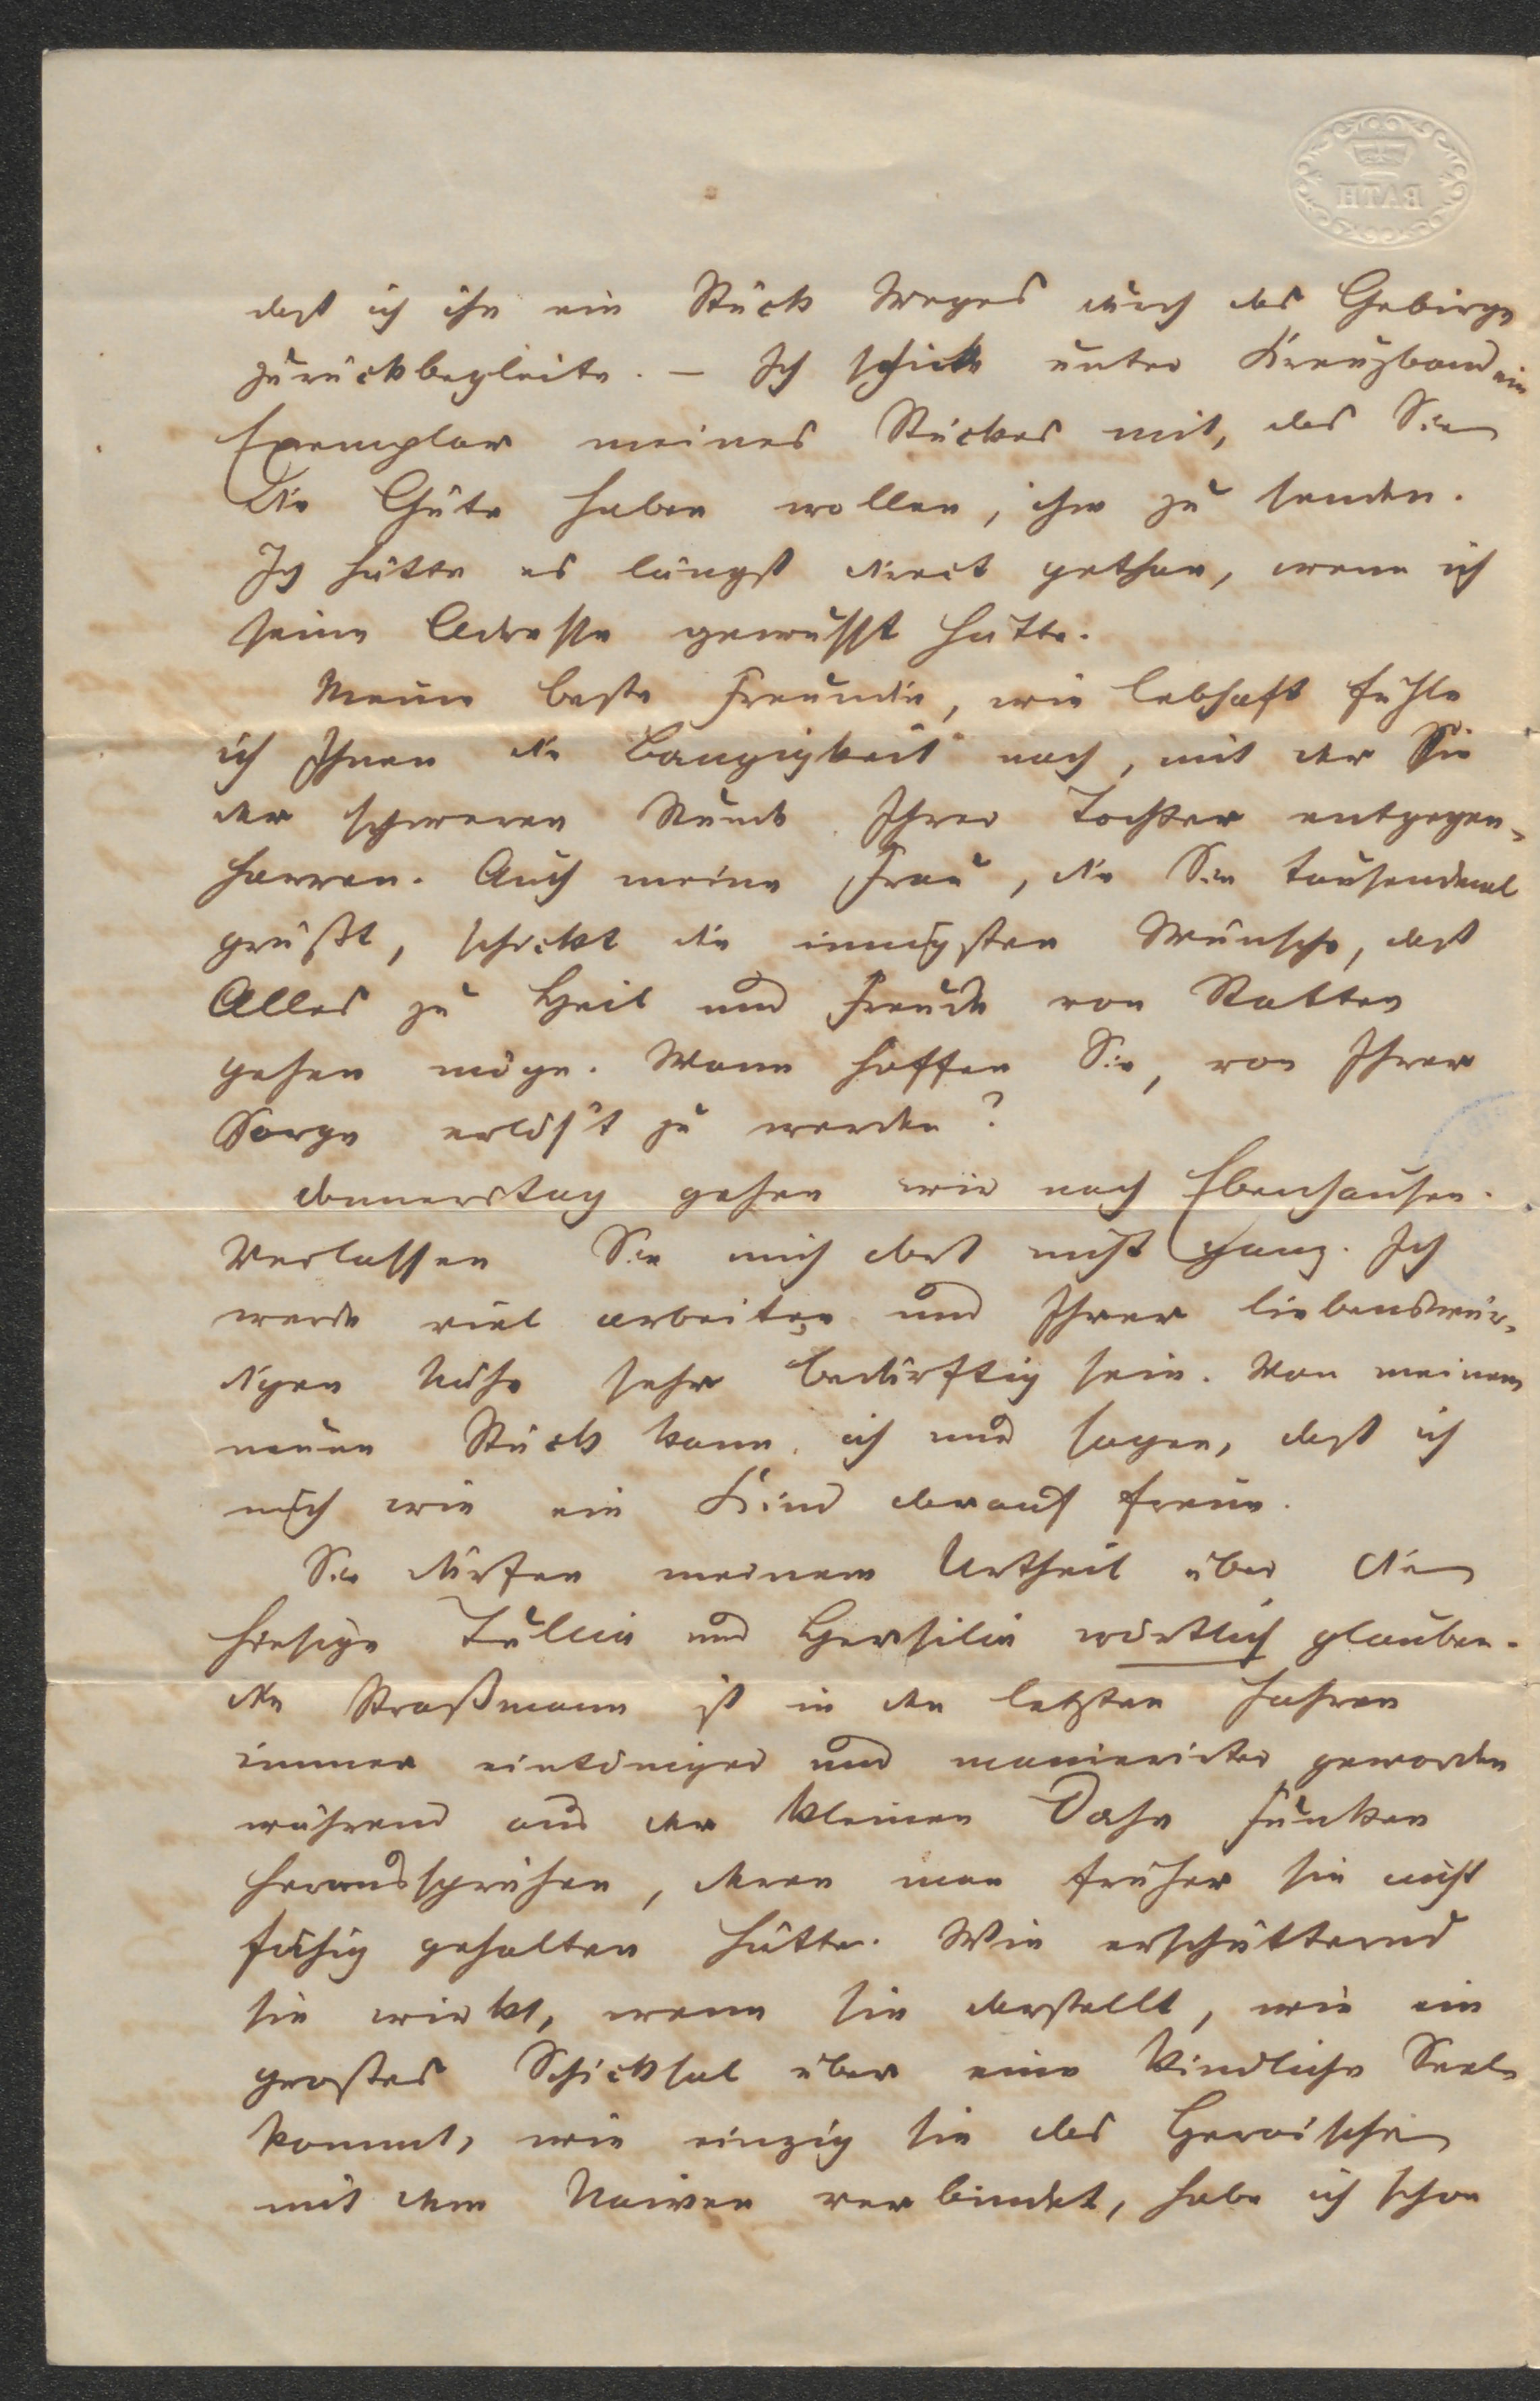 BATH
daß ich ihn ein Stück Weges durch das Gebirge
zurückbegleite. – Ich schicke unter Kreuzband ein
Exemplar meines Stückes mit, das Sie
die Güte haben wollen, ihm zu senden.
Ich hätte es längst direct gethan, wenn ich
seine Adresse gewusst hätte.
Meine beste Freundin, wie lebhaft fühle
ich Ihnen die Bangigkeit nach, mit der Sie
der schweren Stunde Ihrer Tochter entgegen-
harren. Auch meine Frau, die Sie tausendmal
grüßt, schickt die innigsten Wünsche, daß
Alles zu Heil und Freude von Statten
gehen möge. Wann hoffen Sie, von Ihrer
Sorge erlös't zu werden?
Donnerstag gehen wir nach Ebenhausen.
Verlassen Sie mich dort nicht ganz. Ich
werde viel arbeiten und Ihrer liebenswür-
digen Nähe sehr bedürftig sein. Von meinem
neuen Stück kann ich nur sagen, daß ich
mich wie ein Kind darauf freue.
Sie dürfen meinem Urtheil über die
hiesige Tullia und Hersilia wörtlich glauben.
Die Straßmann ist in den letzten Jahren
immer eintöniger und manierirter geworden
während aus der kleinen Dahn Funken
heraussprühen, deren man früher sie nicht
fähig gehalten hätte. Wie erschütternd
sie wirkt, wenn sie darstellt, wie ein
großes Schicksal über eine kindliche Seele
kommt, wie einzig sie das Heroische
mit dem Naiven verbindet, habe ich schon